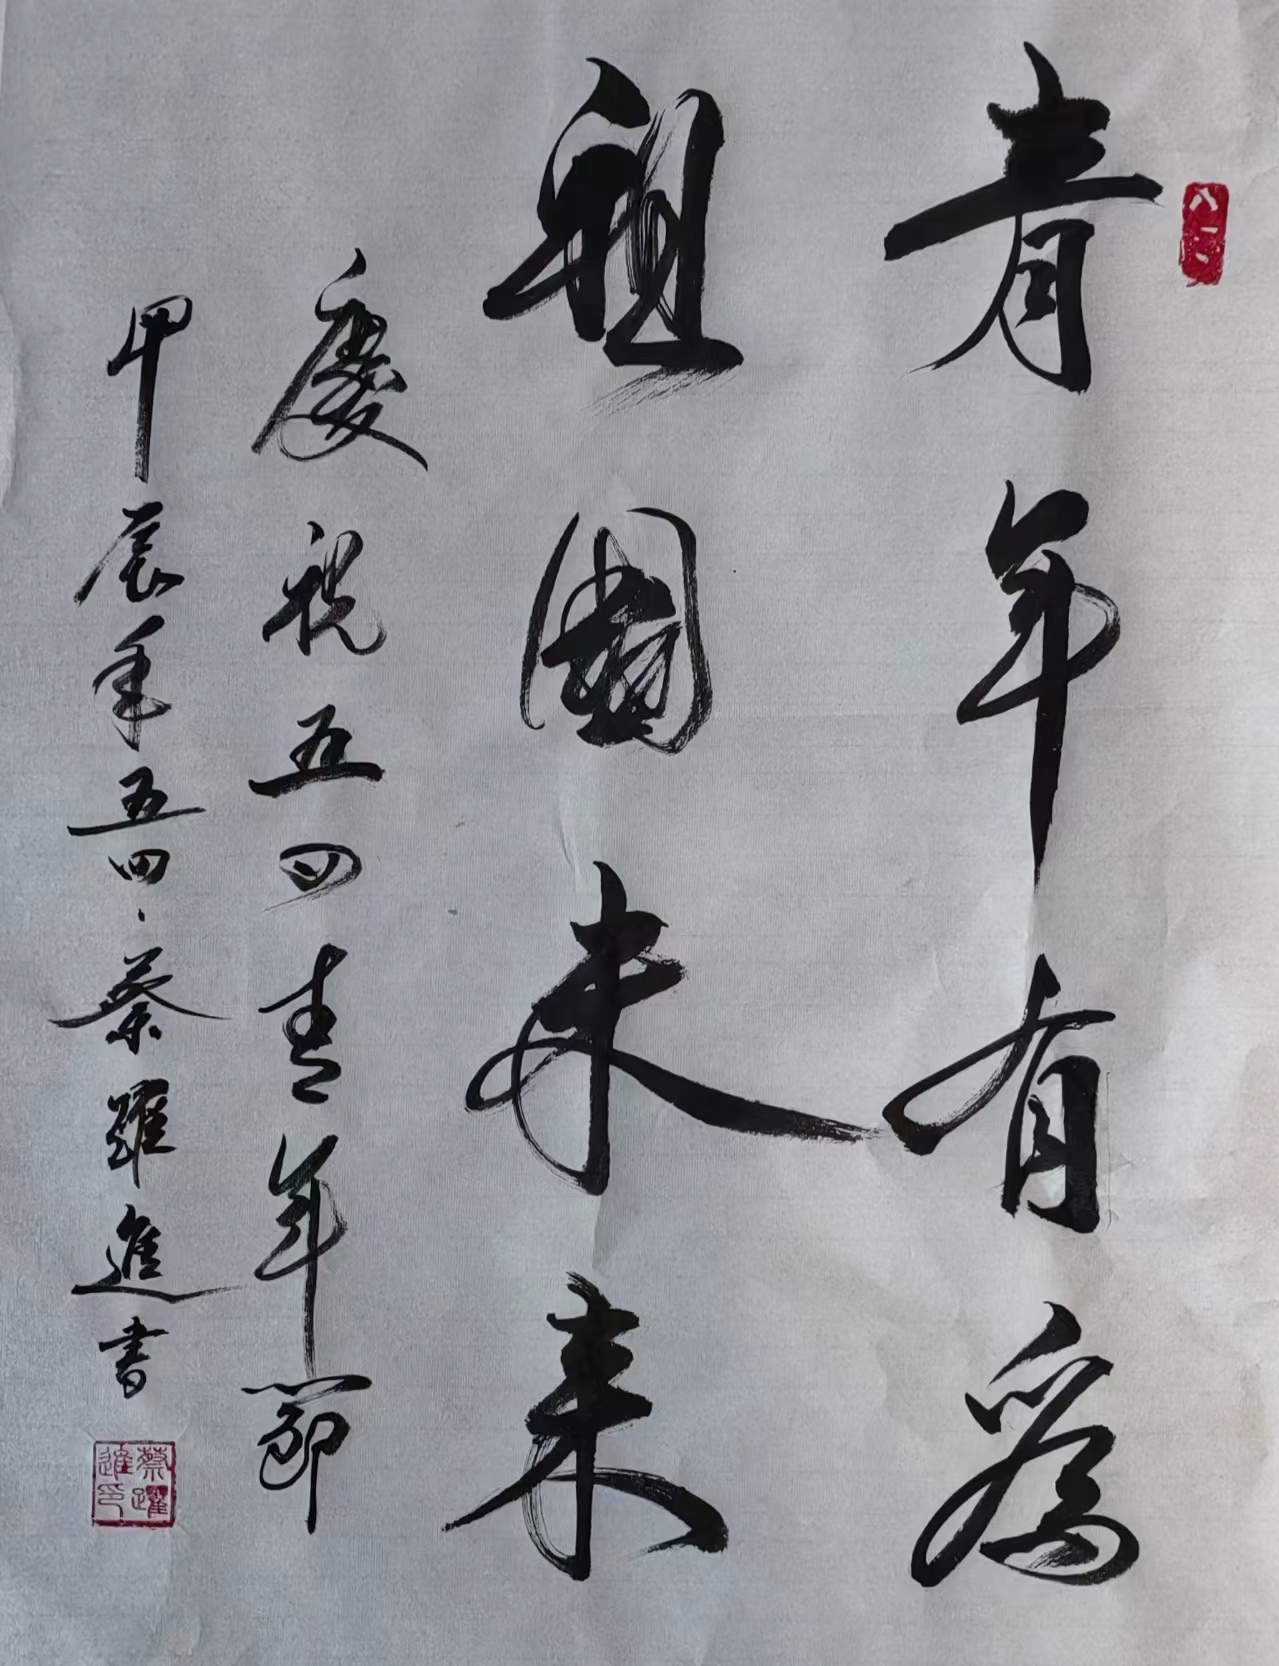 青年有為
祖國未来
慶祝五四青年節
甲辰年五四、蔡躍進書
蔡躍進印